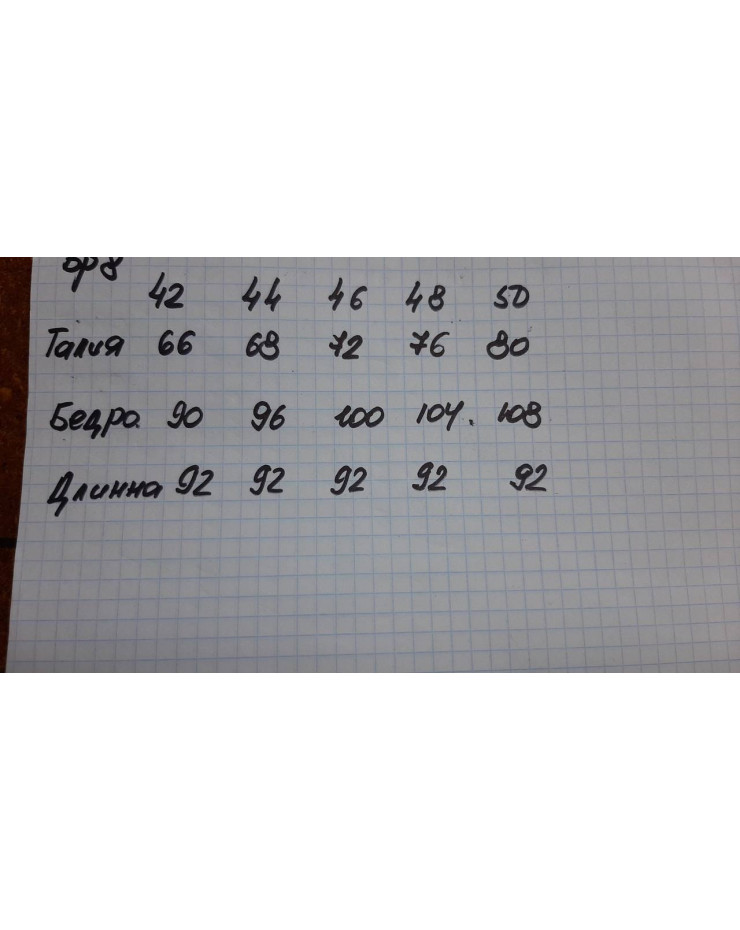 42 44 46 48 50
Талия 66 68 72 76 80
Бедра. 90 96 100 104. 108
Длинна 92 92 92 92 92